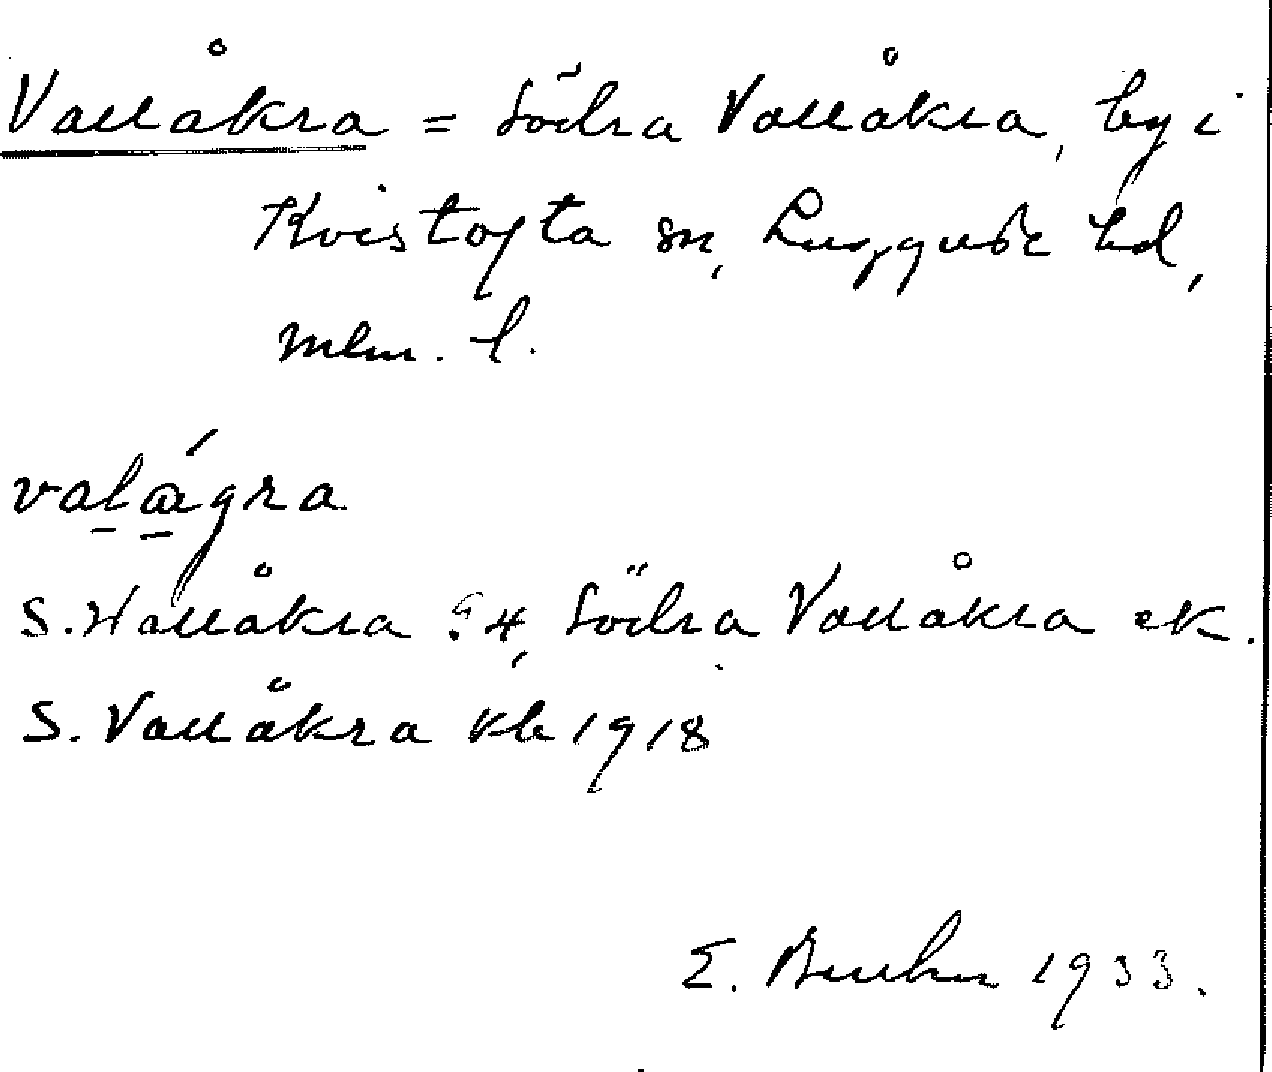 Vallåkra = Södra Vallåkra, by i
Kvistofta sn, Luggude hd,
Mlm. l.
valágra
S. Wallåkra Södra Vallåkra ek.
S. Vallåkra Kb 1918
E. 1933.